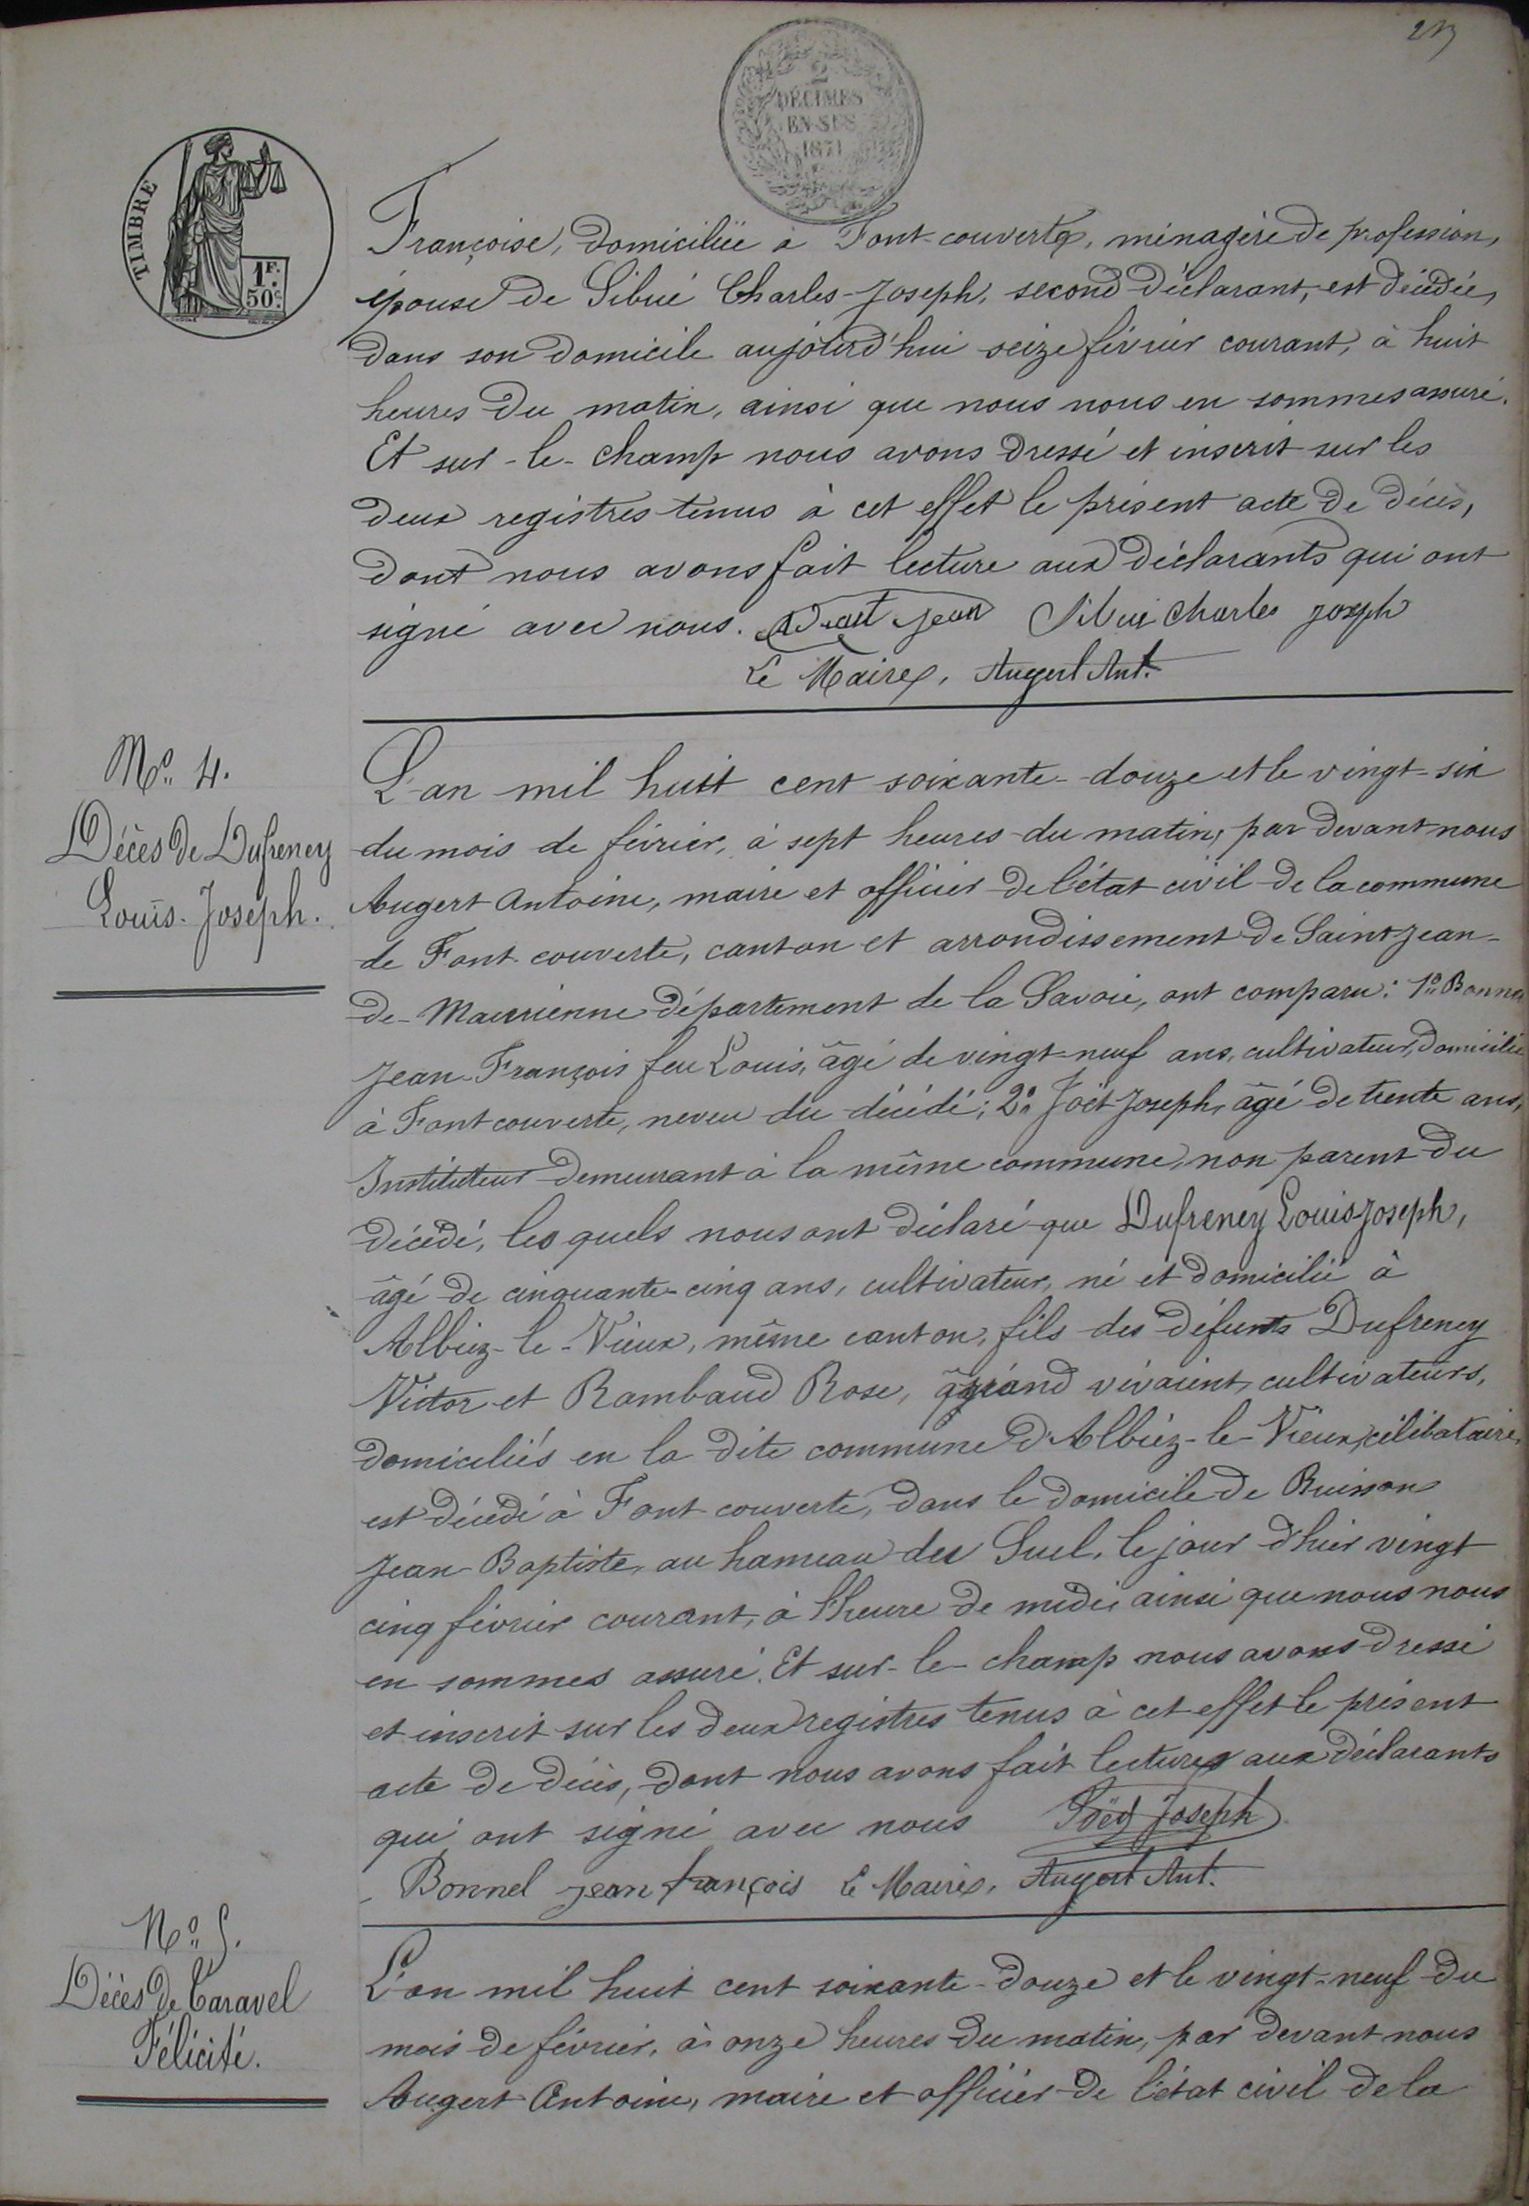 2
DÉCIMES
EN SUS
1871
TIMBRE
1F.
50c.
Françoise, domiciliée à Font-couverte, ménagère de profession,
épouse de Sibué Charles-Joseph, second déclarant, est décédée,
dans son domicile aujourd'hui seize février courant, à huit
heures du matin, ainsi que nous nous en sommes assuré.
Et sur-le-champ nous avons dressé et inscrit sur les
deux registres tenus à cet effet le présent acte de décès,
dont nous avons fait lecture aux déclarants qui ont
signé avec nous. Jean Sibué Charles joseph
Le Maire, Augert Ant.
No. 4.
Décès de Dufreney
Louis-Joseph.
L'an mil huit cent soixante-douze et le vingt-six
du mois de février, à sept heures du matin, par devant nous
Augert Antoine, maire et officier de l'état civil de la commune
de Font-couverte, canton et arrondissement de Saint-Jean-
de-Maurienne département de la Savoie, ont comparu: 1o Bonnel
Jean-François feu Louis, âgé de vingt-neuf ans, cultivateur, domicilié
à Fontcouverte, neveu du décédé; 2o Joët Joseph, âgé de trente ans,
Instituteur demeurant à la même commune, non parent du
décédé, les quels nous ont déclaré que Dufreney Louis-Joseph,
âgé de cinquante-cinq ans, cultivateur, né et domicilié à
Albiez-le-Vieux, même canton, fils des défunts Dufreney
Victor et Rambaud Rose, quand vivaient, cultivateurs,
domiciliés en la dite commune d'Albiez-le-Vieux, célibataire,
est décédé à Font couverte, dans le domicile de Buisson
Jean-Baptiste, au hameau du Suel, le jour d'hier vingt
cinq février courant, à l'heure de midi, ainsi que nous nous
en sommes assuré. Et sur-le-champ nous avons dressé
et inscrit sur les deux registres tenus à cet effet le présent
acte de décès, dont nous avons fait lecture aux déclarants
qui ont signé avec nous Joseph
Bonnel jean françois Le Maire, Augert Ant.
No. 5.
Décès de Caravel
Félicité.
L'an mil huit cent soixante-douze et le vingt-neuf du
mois de février, à onze heures du matin, par devant nous
Augert Antoine, maire et officier de l'état civil de la